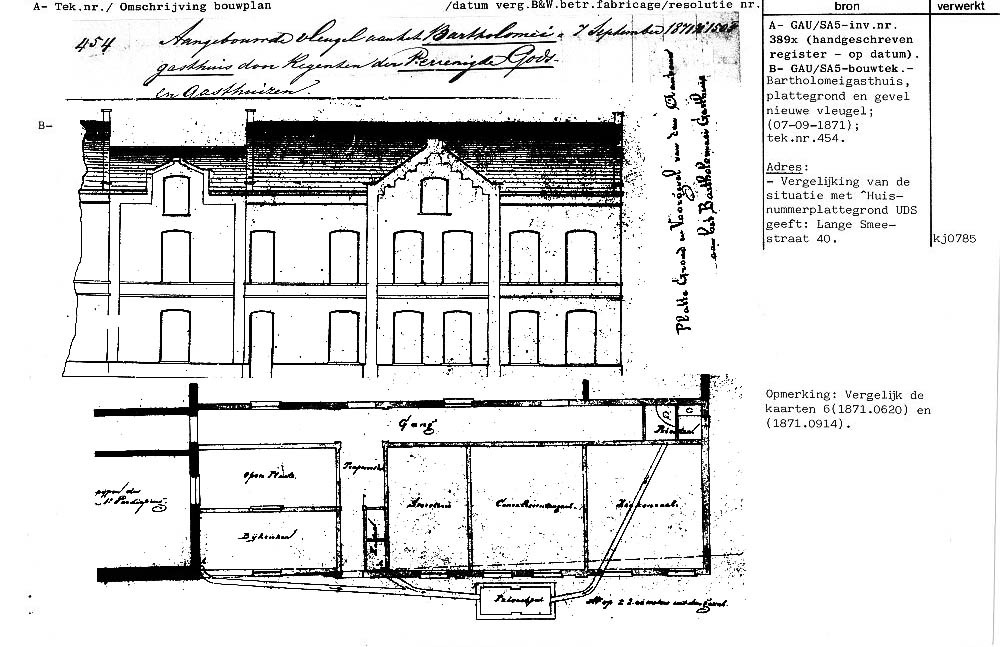 A- Tek.nr./ Omschrijving bouwplan /datum verg.B&W.betr.fabricage/resolutie nr. bron verwerkt
454 Aangebouwde vleugel aan het Bartholomei= 7 September 1871
gasthuis door Regenten der Vereenigde Gods-
en Gasthuizen
A- GAU/SA5-inv.nr.
389x (handgeschreven
register - op datum).
B- GAU/SA5-bouwtek.-
Bartholomeigasthuis,
plattegrond en gevel
nieuwe vleugel;
(07-09-1871);
tek.nr.454.
Adres:
- Vergelijking van de
situatie met ^Huis-
nummerplattegrond UDS
geeft: Lange Smee-
straat 40.
kj0785
B-
Platte Grond en Voorgevel van den Aanbouw
aan het Bartholomei Gasthuis
Opmerking: Vergelijk de
kaarten 6(1871.0620) en
(1871.0914).
Gang
Open Plaats
Bijkeuken
Conversatiezaal
Ziekenzaal